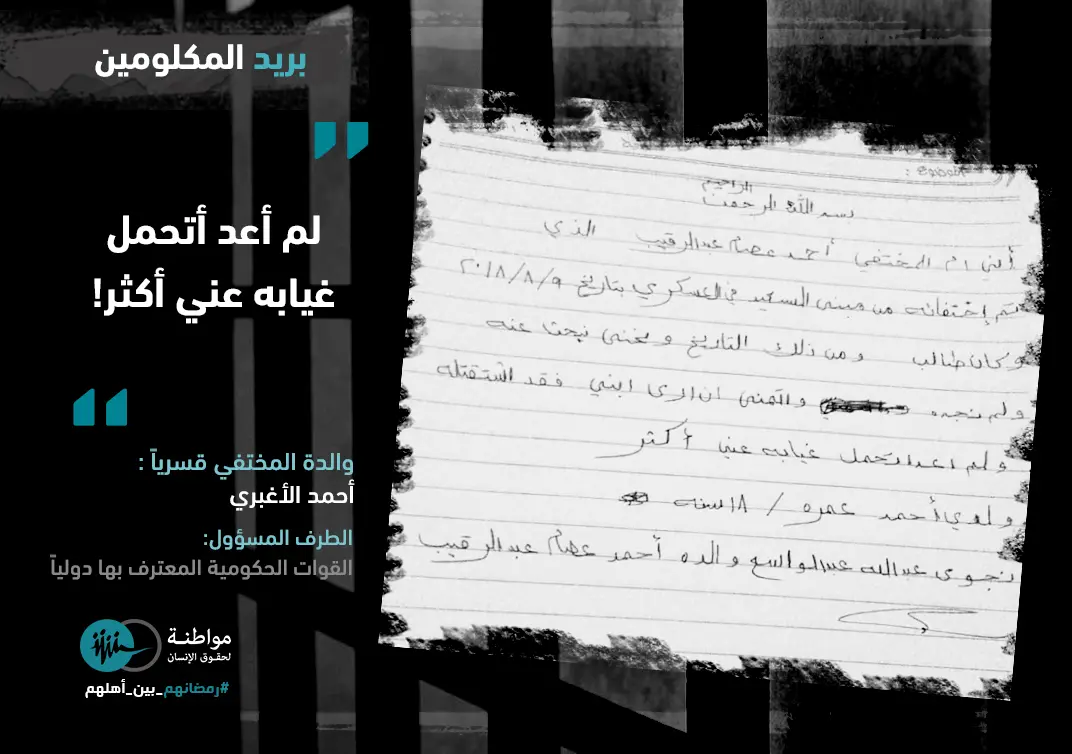 بريد المكلومين
"
لم أعد أتحمل
غيابه عني أكثر!
"
والدة المختفي قسرياً :
أحمد الأغبري
الطرف المسؤول:
القوات الحكومية المعترف بها دولياً
مواطنة
لحقوق الإنسان
#رمضانهم_بين_أهلهم
الموضوع :
بسم الله الرحمن الرحيم
أنني ام المختفي أحمد عصام عبدالرقيب الذي
تم إختفائه من مبنى السعيد في العسكري بتاريخ ٢٠١٨/٨/٩
وكان طالب ومن ذلك التاريخ ونحنى نبحث عنه
ولم نجده واتمنى ان ارى ابني فقد اشتقتله
ولم اعد اتحمل غيابه عني أكثر
ولدي أحمد عمره / ١٨ سنه
نجوى عبدالله عبدالواسع والده أحمد عصام عبدالرقيب